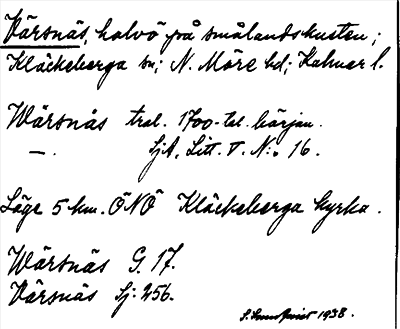 Värsnäs, halvö på smålandskusten;
Kläckeberga sn; N. Möre hd; Kalmar l.
Wärsnäs trol. 1700-tal. början.
—. SjA, Litt. T. N:o 16.
Läge 5 km. ÖNÖ Kläckeberga kyrka.
Wärsnäs G. 17.
Värsnäs Sj: 256.
1938.